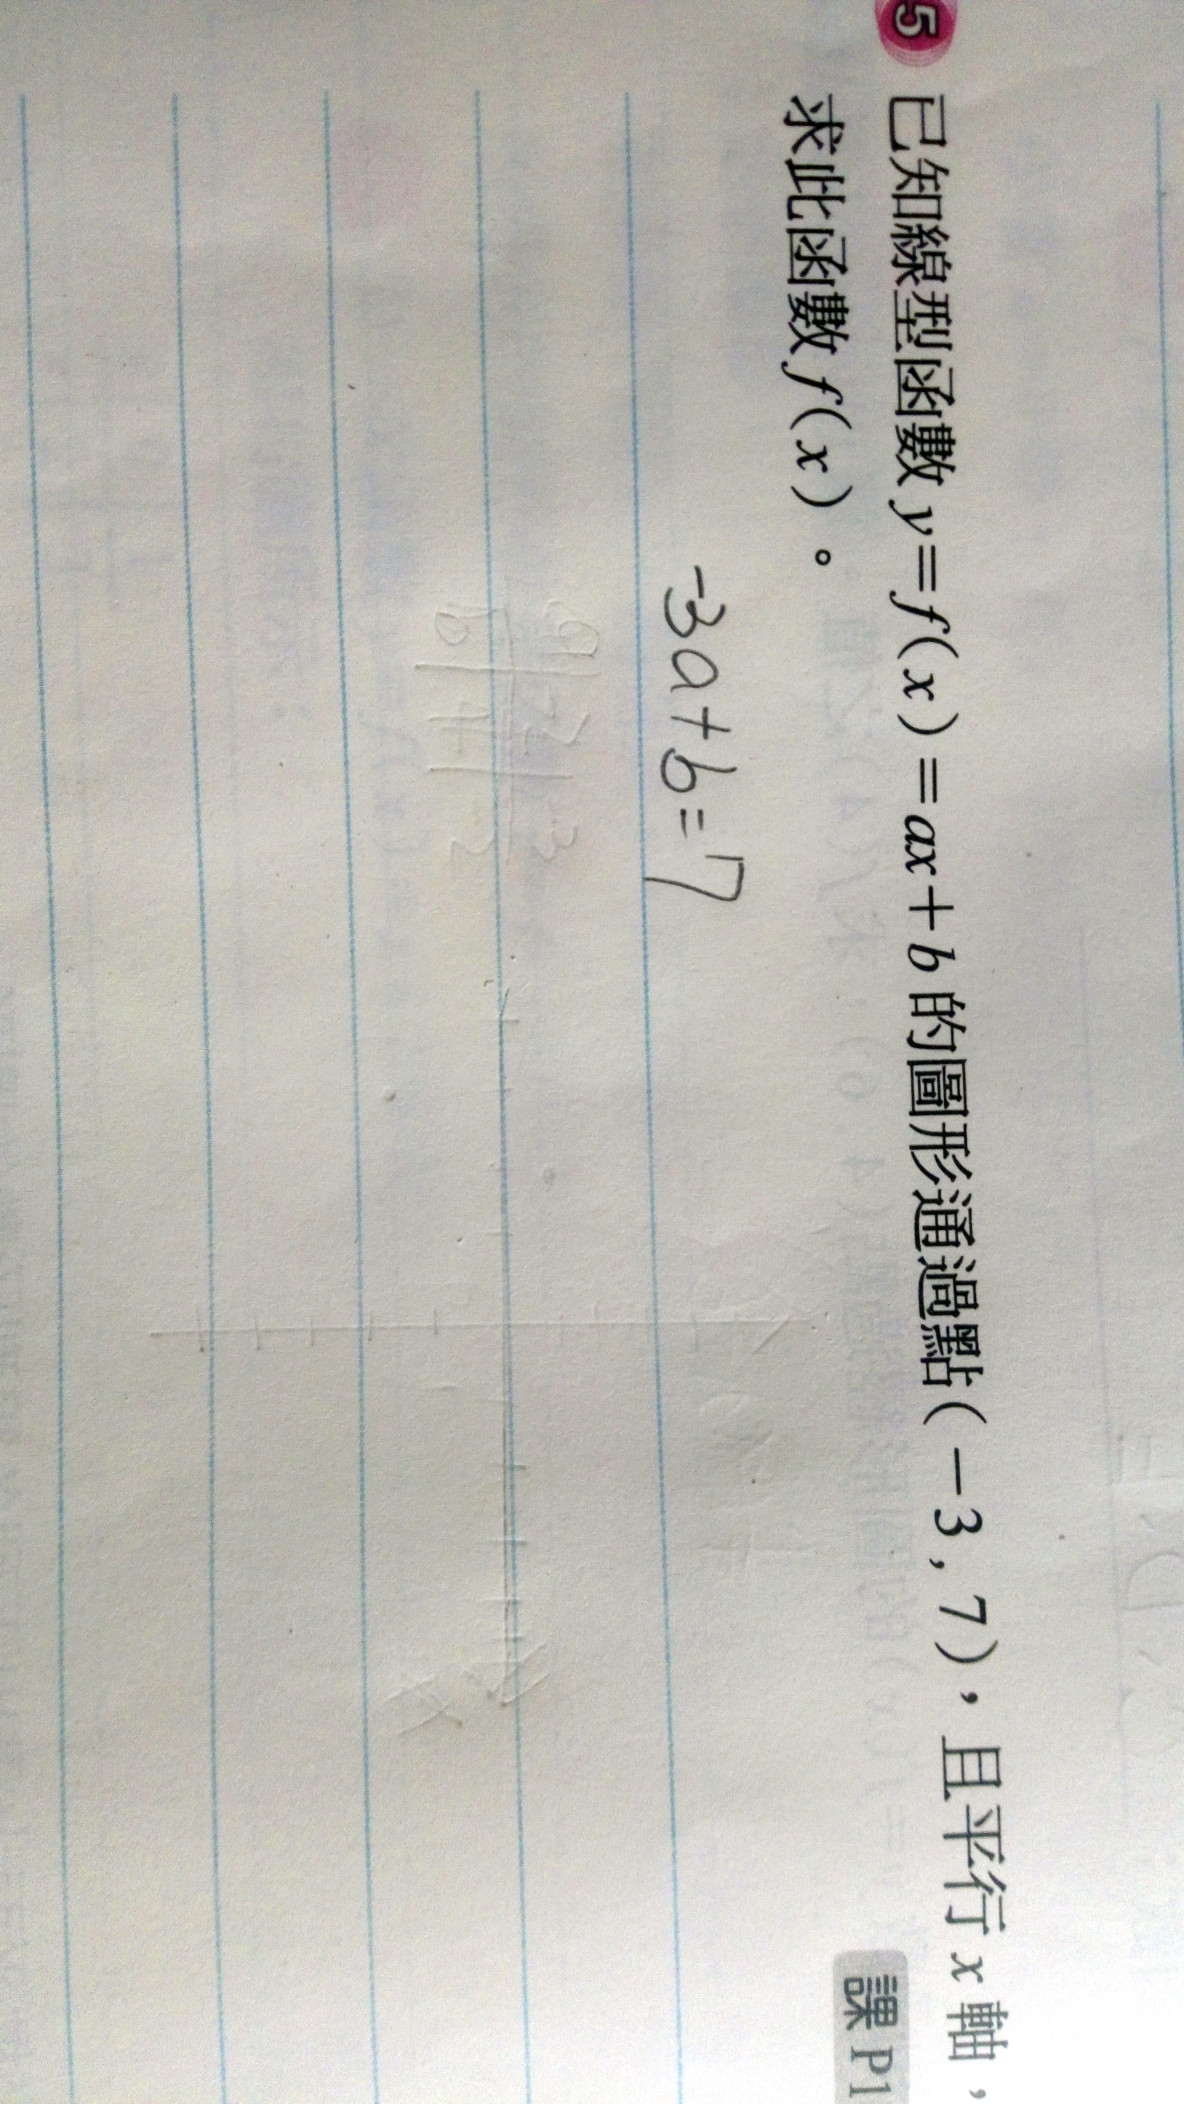 5 已知線型函數 y=f(x)=ax+b 的圖形通過點(-3,7)，且平行 x 軸，
求此函數 f(x)。
課 P1
-3a+b=7